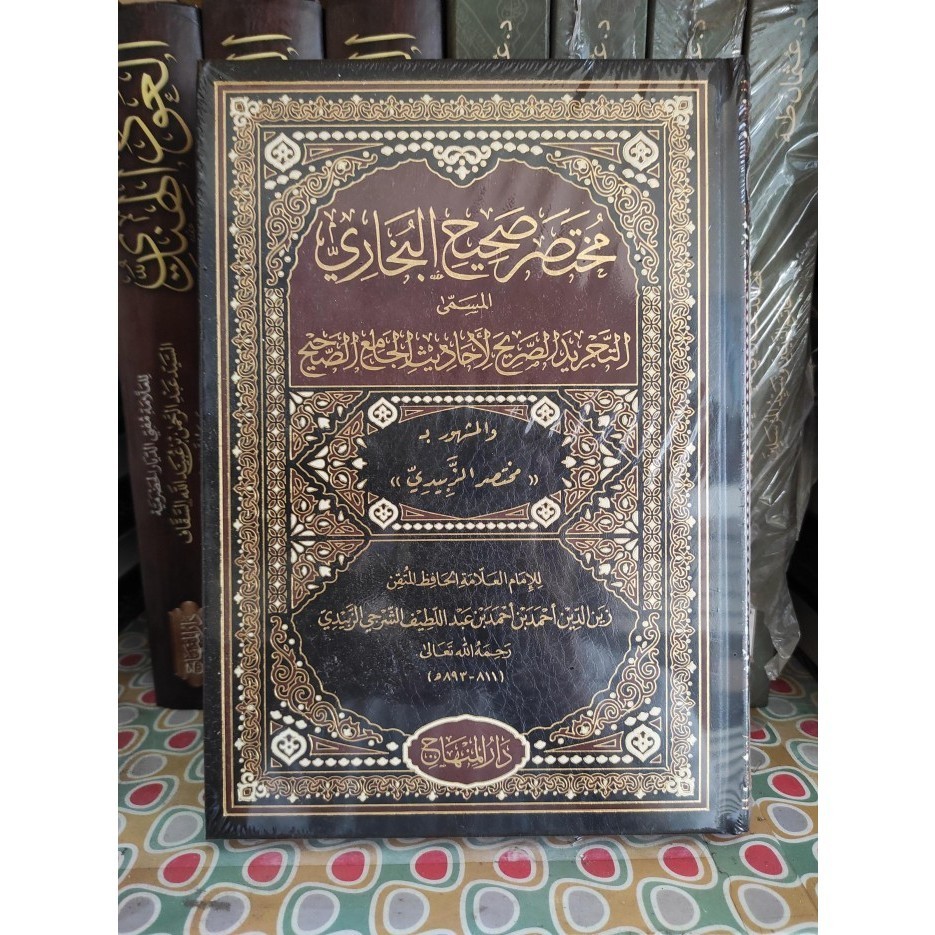 مُخْتَصَر صَحِيح البُخَارِيّ
المُسَمَّىٰ
التَّجْرِيدَ الصَّرِيحَ لِأَحَادِيثِ الجَامِعِ الصَّحِيحِ
والمشهور بـ
« مختصر الزَّبِيدِيّ »
لِلإِمَامِ العَلَّامَةِ الحَافِظِ المُتْقِن
زَيْنِ الدِّيْنِ أَحْمَدَ بْنِ أَحْمَدَ بْنِ عَبْدِ اللَّطِيفِ الشَّرْجِيِّ الزَّبِيْدِيِّ
رَحِمَهُ اللهُ تَعَالَىٰ
(٨١١-٨٩٣هـ)
دَارُ المِنْهَاج
العود الهندي
السَّيِّد عَبْد الرَّحْمٰن بْن عُبَيْد اللَّه السَّقَّاف
د. عثمان طه